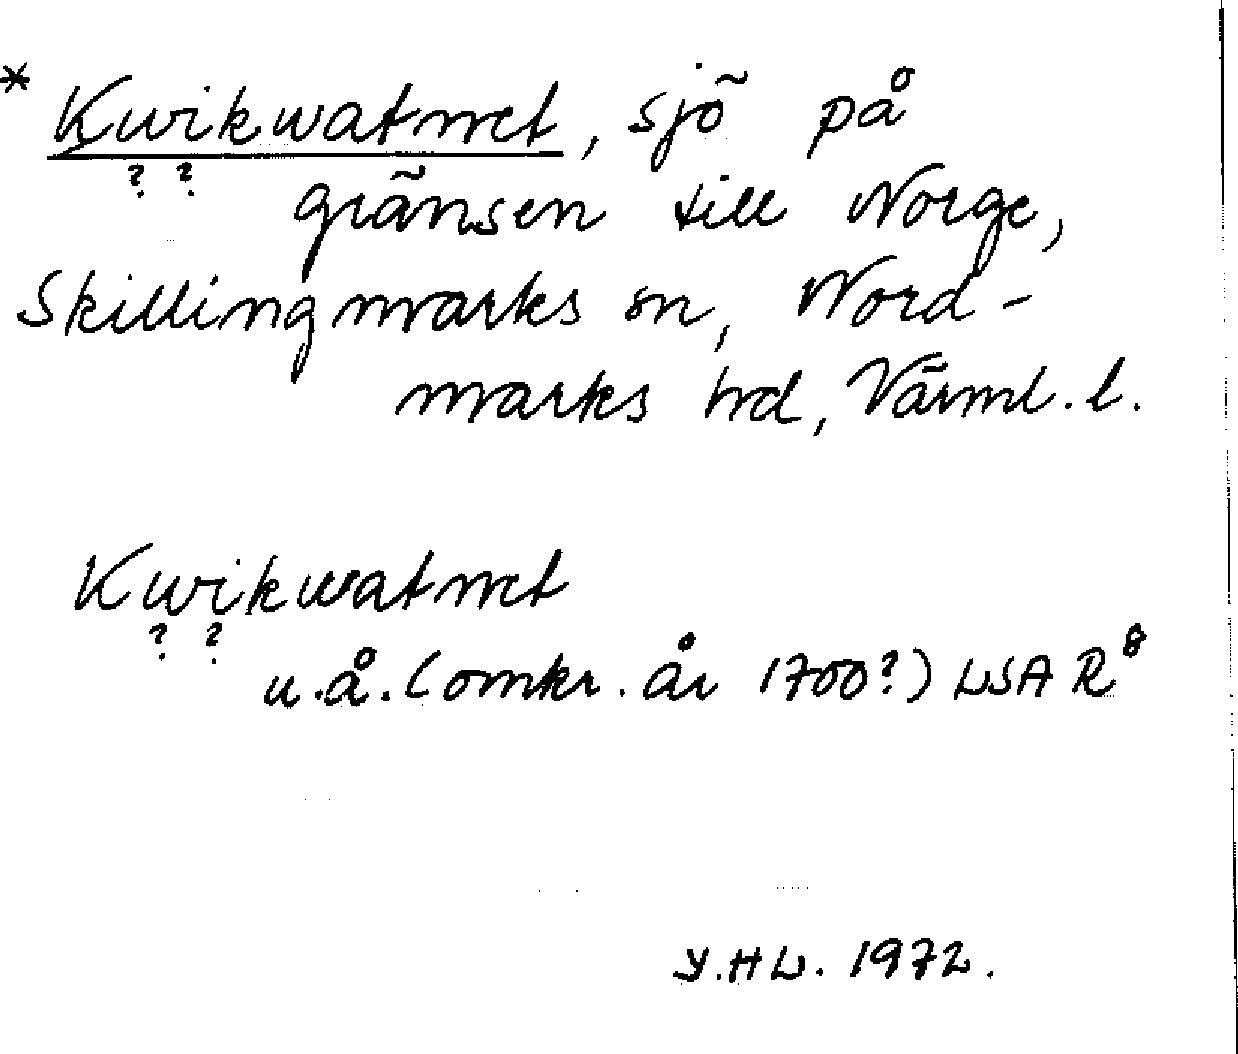 * Kwikwatnet, sjö på
? ?
gränsen till Norge,
Skillingmarks sn, Nord-
marks hd, Värml. l.
Kwikwatnet
? ?
u.å. (omkr. år 1700?) LSA R⁸
Y.HL. 1972.